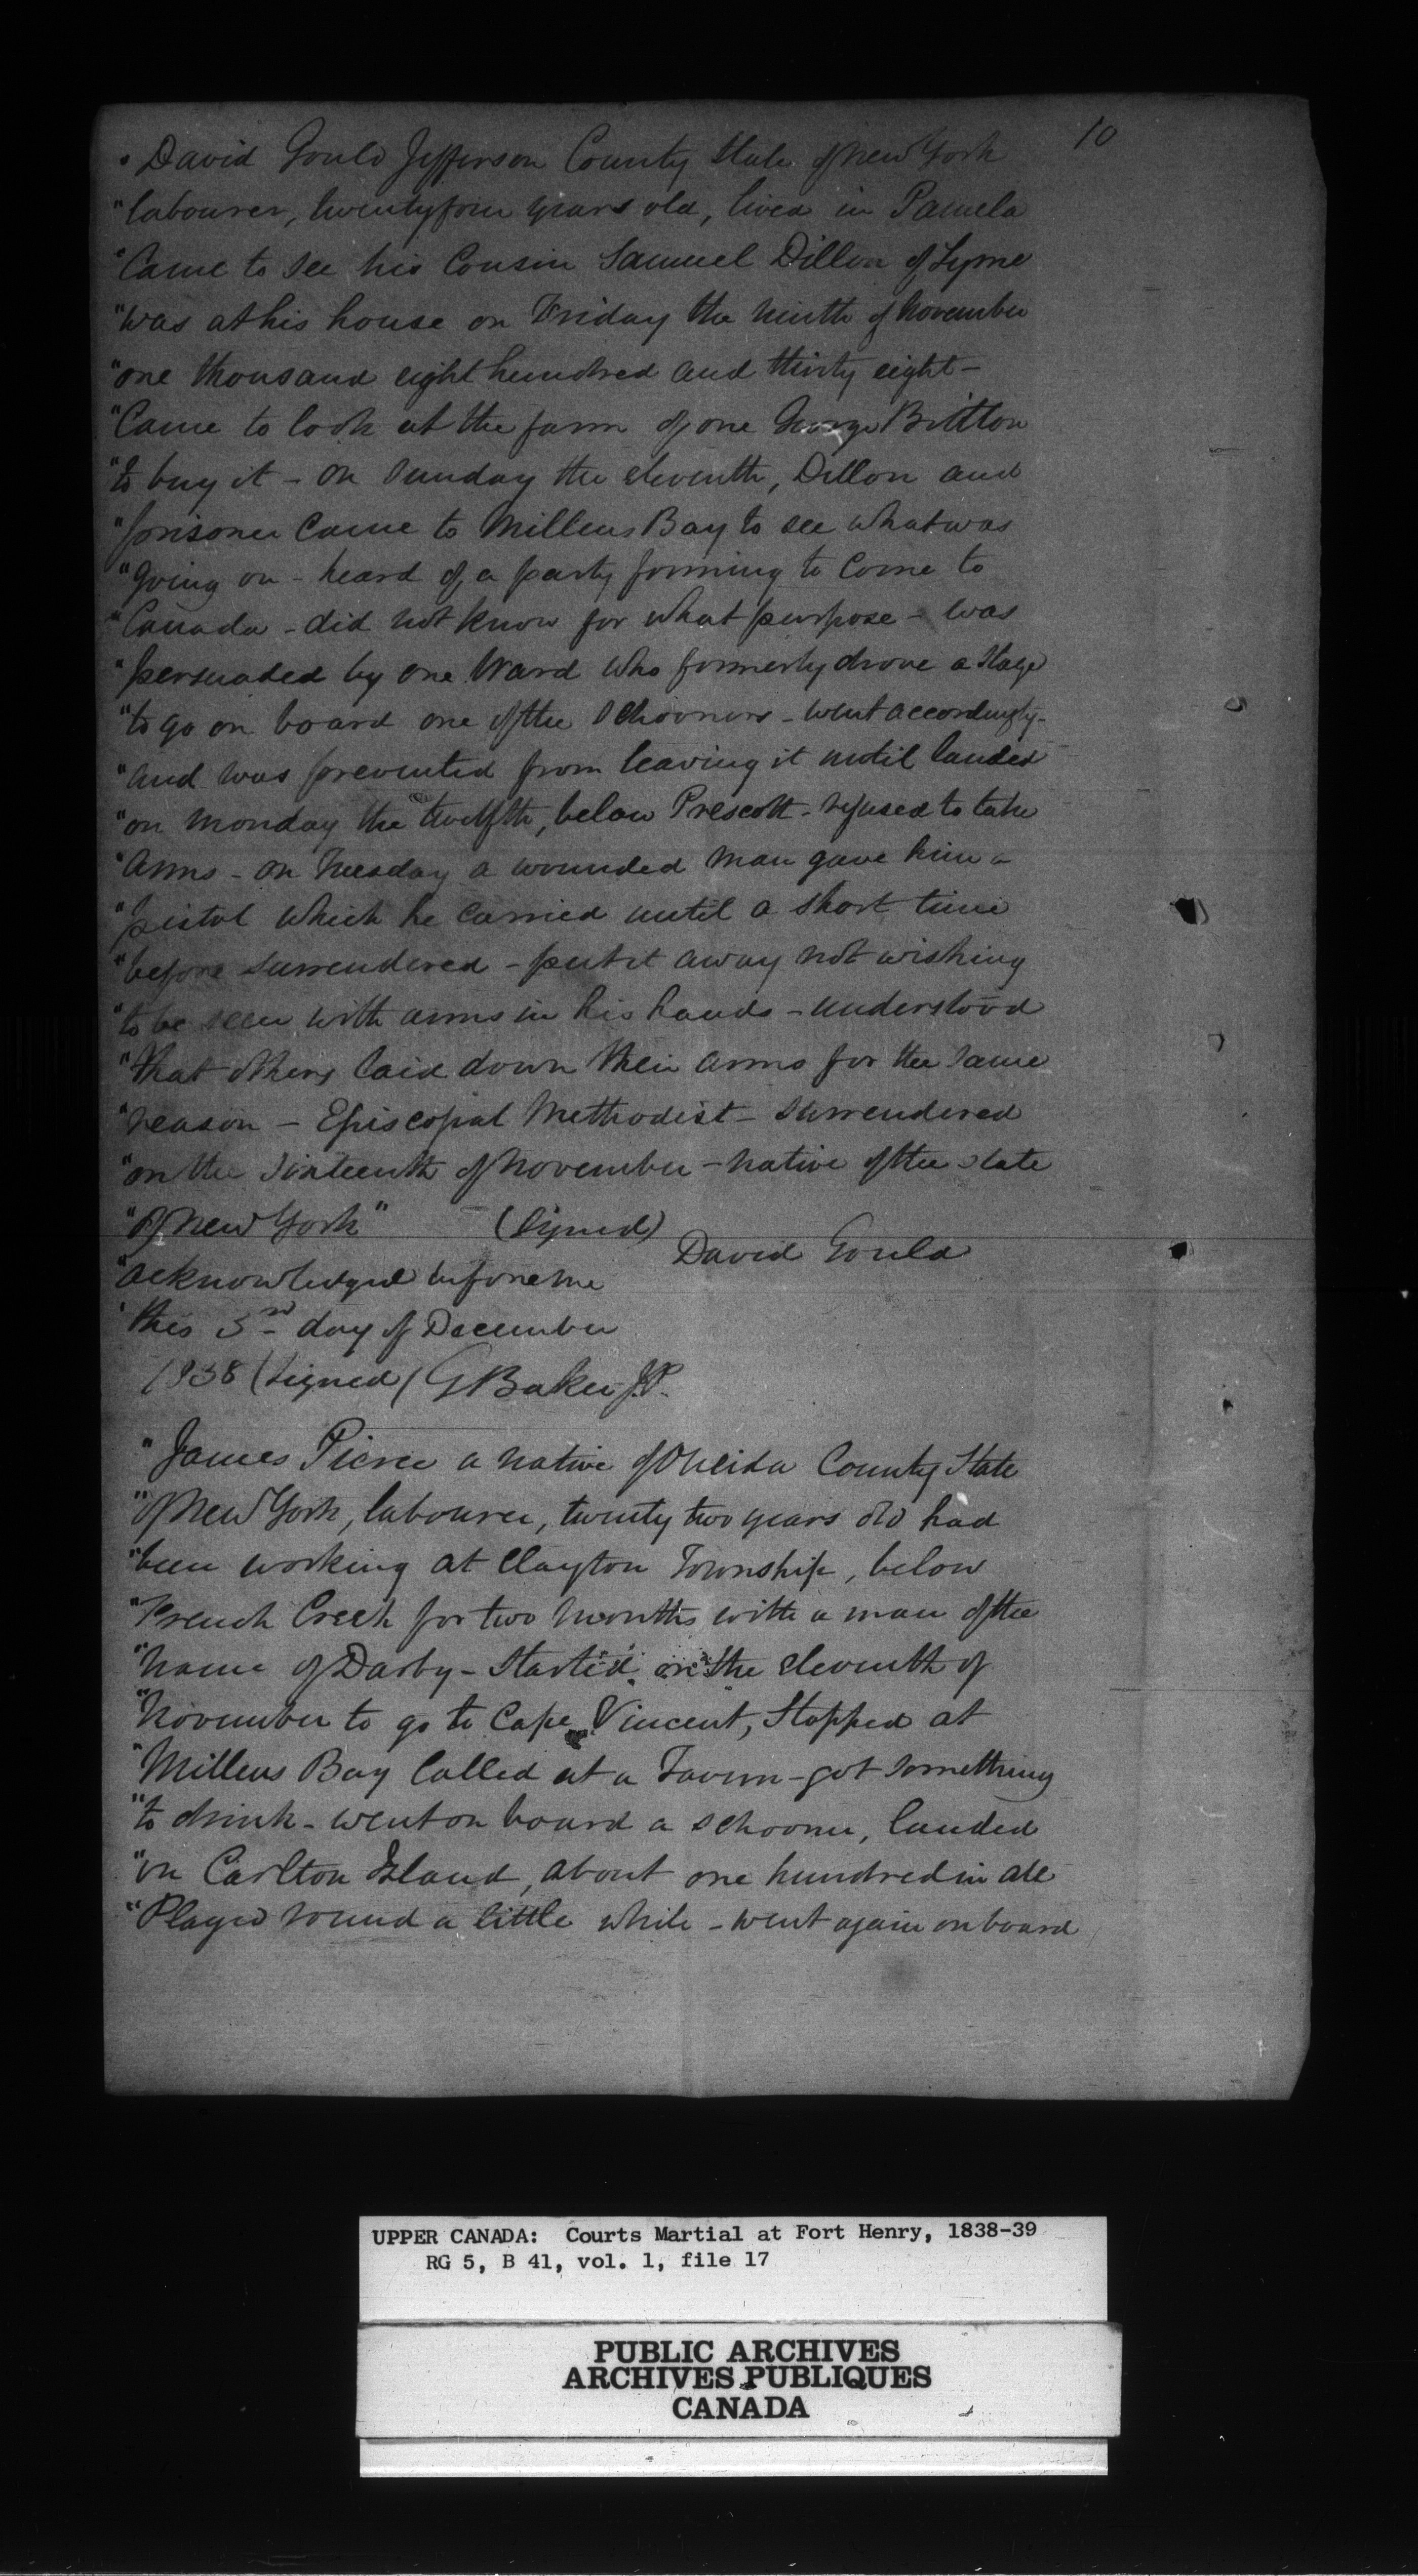 10
"David Gould Jefferson County State of New York
"labourer, twentyfour years old, lived in Pamela
"Came to see his Cousin Samuel Dillon of Lyme
"was at his house on Friday the ninth of November
"one thousand eight hundred and thirty eight -
"Came to look at the farm of one George Britton
"to buy it - on Sunday the eleventh, Dillon and
"prisoner Came to Millens Bay to see what was
"going on - heard of a party forming to Come to
"Canada - did not know for what purpose - was
"persuaded by one Ward who formerly drove a stage
"to go on board one of the Schooners - went accordingly -
"and was prevented from leaving it until landed
"on Monday the twelfth, below Prescott - refused to take
"arms - on Tuesday a wounded man gave him a
"pistol which he carried until a short time
"before surrendered - put it away not wishing
"to be seen with arms in his hands - understood
"that others laid down their arms for the same
"reason - Episcopal Methodist - surrendered
"on the sixteenth of November - native of the state
"of New York" (Signed)
David Gould
"acknowledged before me
"this 3rd day of December
1838 (Signed) G Baker J.P.
"James Pierce a native of Oneida County State
"of New York, labourer, twenty two years old had
"been working at Clayton Township, below
"French Creek for two months with a man of the
"name of Darby - Started on the eleventh of
"November to go to Cape Vincent, Stopped at
"Millens Bay Called at a Tavern - got something
"to drink - went on board a schooner, landed
"on Carlton Island, about one hundred in all
"Played round a little while - went again on board
UPPER CANADA: Courts Martial at Fort Henry, 1838-39
RG 5, B 41, vol. 1, file 17
PUBLIC ARCHIVES
ARCHIVES PUBLIQUES
CANADA